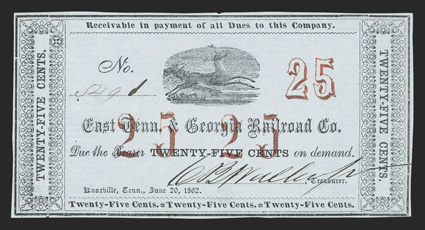 Receivable in payment of all Dues to this Company.
TWENTY-FIVE CENTS.
TWENTY-FIVE CENTS.
No.
25
East Tenn. & Georgia Railroad Co.
25 25
Due the Bearer TWENTY-FIVE CENTS on demand.
Treasurer.
Knoxville, Tenn., June 20, 1862.
Twenty-Five Cents. Twenty-Five Cents. Twenty-Five Cents.